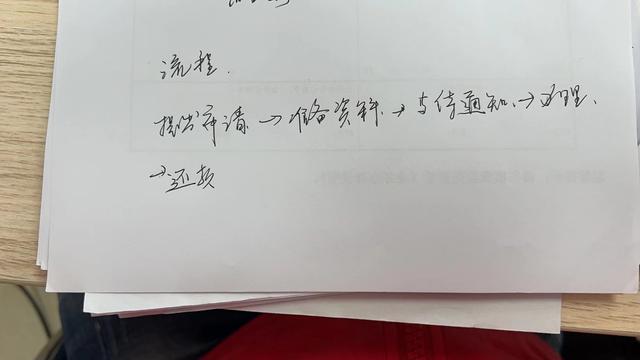 流程.
提出申请→准备资料→等待通知→办理、
→还款